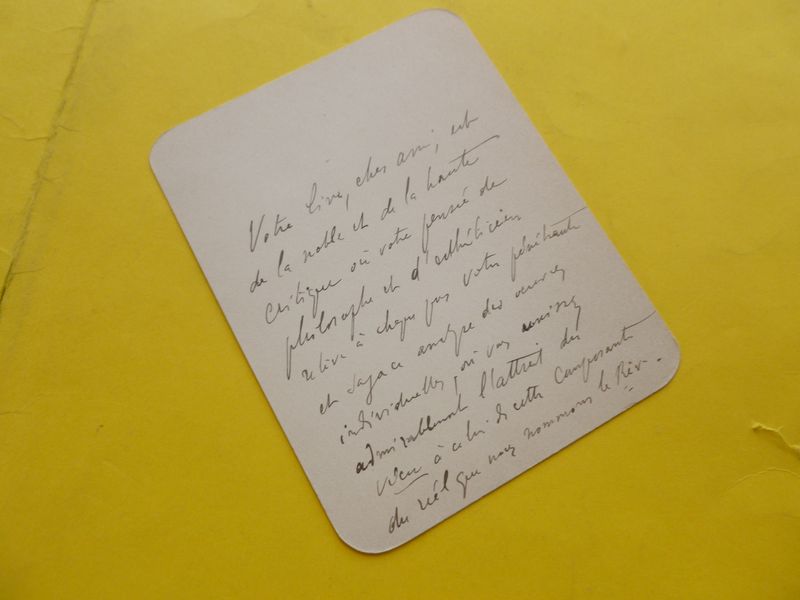 Votre livre, cher ami, est
de la noble et de la haute
critique où votre pensée de
philosophe et d'esthéticien
relève à chaque pas votre pénétrante
et sagace analyse des œuvres
individuelles, où vous unissez
admirablement l'attrait du
vécu à celui de cette composante
du réel que nous nommons le Rêve.